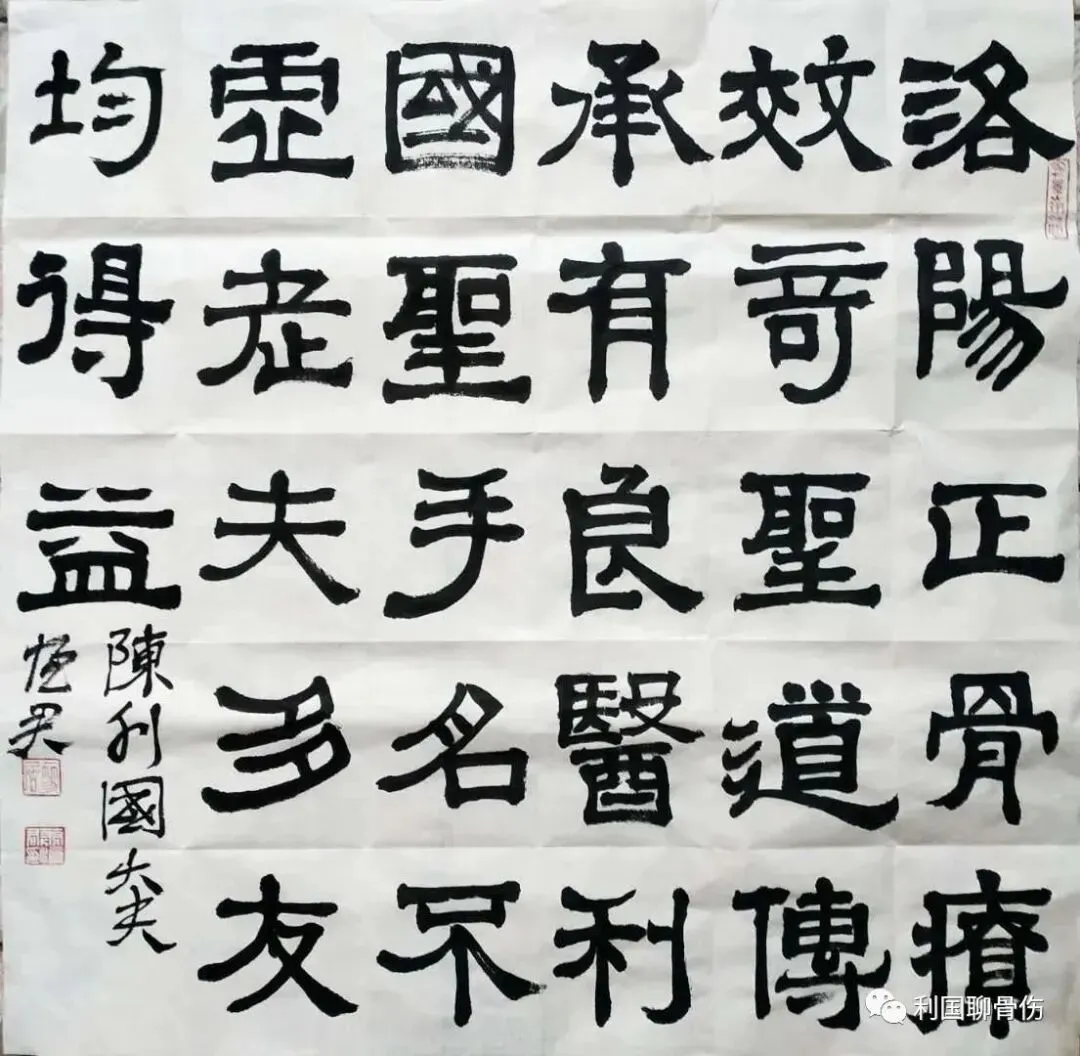 洛陽正骨療
效竒聖道傳
承有良醫利
國聖手名不
虛老夫多友
均得益
陳利國大夫
利国聊骨伤